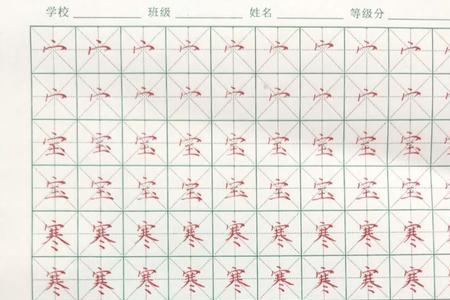 学校 班级 姓名 等级分
宀 宀 宀 宀 宀 宀 宀 宀 宀 宀
宀 宀 宀 宀 宀 宀 宀 宀 宀 宀
宝 宝 宝 宝 宝 宝 宝 宝 宝 宝
宝 宝 宝 宝 宝 宝 宝 宝 宝 宝
寒 寒 寒 寒 寒 寒 寒 寒 寒 寒
寒 寒 寒 寒 寒 寒 寒 寒 寒 寒